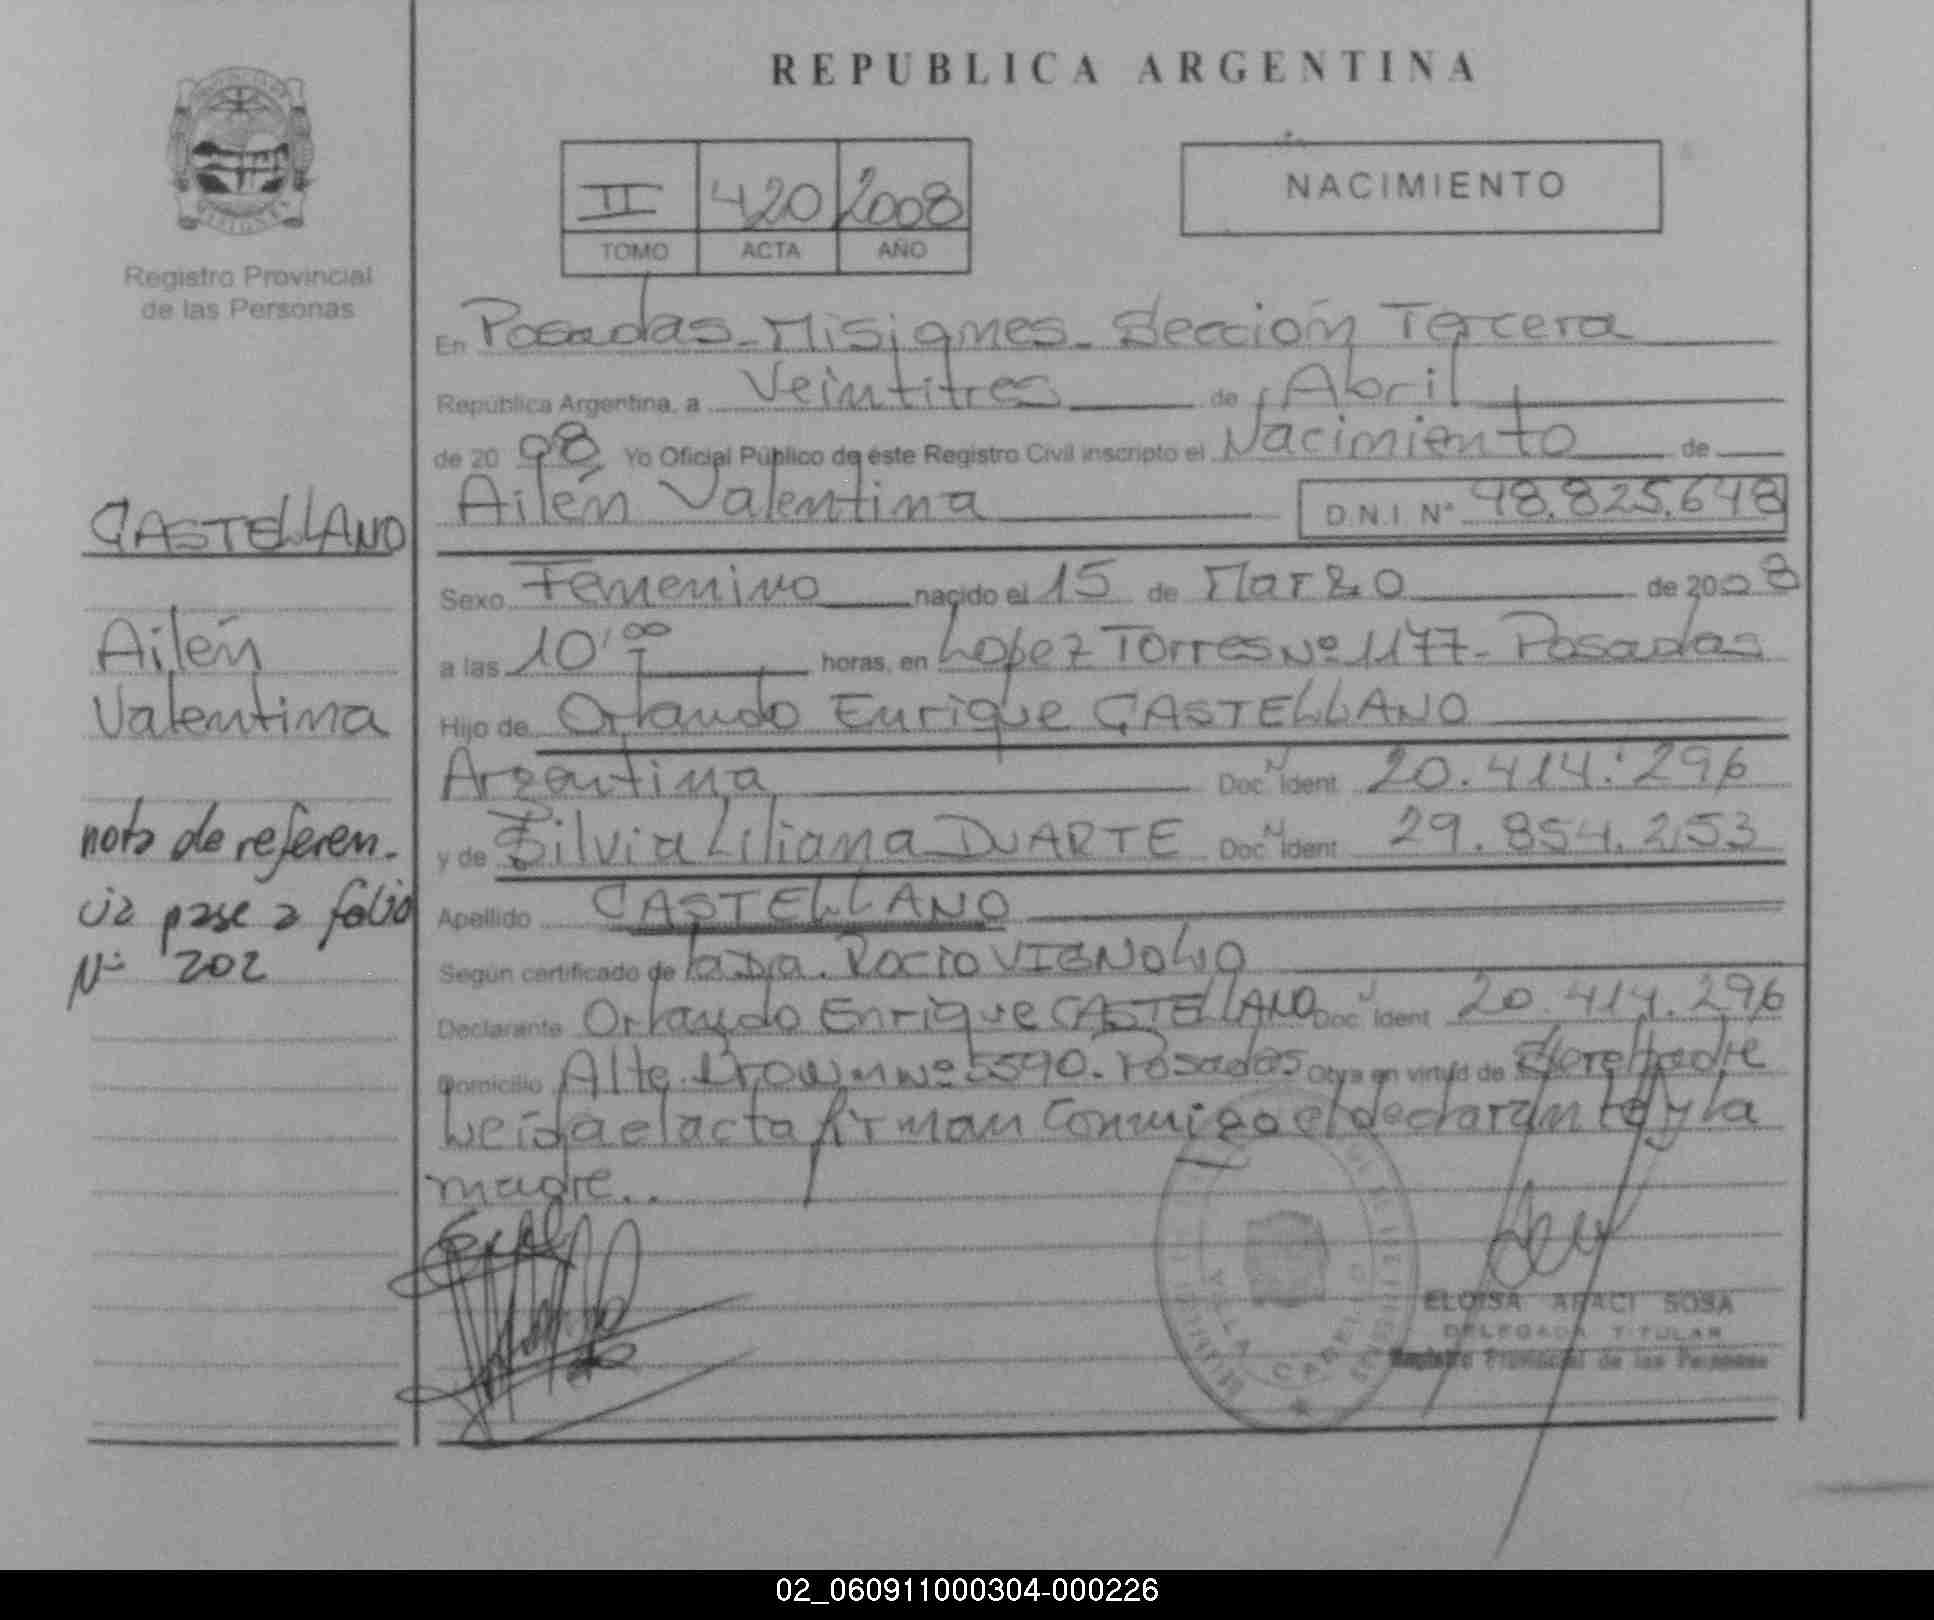 REPUBLICA ARGENTINA
II 420 2008
TOMO ACTA AÑO
NACIMIENTO
Registro Provincial
de las Personas
En Posadas - Misiones - Sección Tercera
República Argentina, a Veintitres de Abril
de 2008 Yo Oficial Público de éste Registro Civil inscripto el Nacimiento de
Ailén Valentina D.N.I. Nº 48.825.648
Sexo Femenino nacido el 15 de Marzo de 2008
a las 10,00 horas, en Lopez Torres Nº 1177 - Posadas
Hijo de Orlando Enrique CASTELLANO
Argentina Doc. Ident 20.414.296
y de Silvia Liliana DUARTE Doc. Ident 29.854.253
Apellido CASTELLANO
Según certificado de la Dra. Rocio VIGNOLIO
Declarante Orlando Enrique CASTELLANO Doc. Ident 20.414.296
Domicilio Alte. Brown Nº 5590 - Posadas Obra en virtud de Ser el padre
Leída el acta firman conmigo el declarante y la
madre..
CASTELLANO
Ailén
Valentina
nota de referen-
cia pase a folio
Nº 202
VILLA CABELLO
ELOISA ARACI SOSA
DELEGADA TITULAR
Registro Provincial de las Personas
02_060911000304-000226